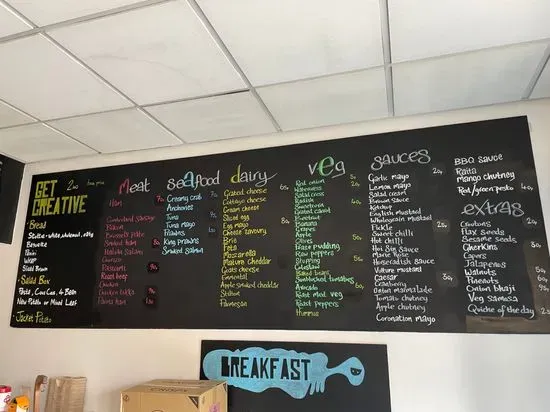 GET CREATIVE
2.00
Bread
Baguette
Panini
Wrap
Sliced Bread
Salad Box
Pasta, Cous Cous, 4 Bean
New Potato or Mixed Leaf
Jacket Potato
Meat
Ham
70p
Cumberland sausage
Bacon
Brussels pate
Smoked ham
80p
Chorizo
Pastrami
Roast beef
90p
Chicken
Chicken tikka
Parma ham
seafood
Creamy crab
70p
Anchovies
Tuna
Tuna mayo
Prawns
King prawns
Smoked salmon
dairy
Grated cheese
60p
Cottage cheese
Cream cheese
Sliced egg
Egg mayo
Cheese savoury
Brie
Feta
Mozzarella
Mature cheddar
Goats cheese
Emmental
Apple smoked cheddar
Stilton
Parmesan
veg
Red onion
Watercress
Salad cress
Radish
Sweetcorn
Grated carrot
Beetroot
Banana
Grapes
Apple
Olives
Pease pudding
Raw peppers
Stuffing
Coleslaw
Baked beans
Sunblushed tomatoes
Avocado
Roast med. veg
Roast peppers
Hummus
sauces
Garlic mayo
20p
Lemon mayo
Salad cream
Brown sauce
Ketchup
English mustard
Wholegrain mustard
Pickle
Sweet chilli
Hot chilli
Hoi Sin sauce
Marie Rose
Horseradish sauce
Caesar
30p
Cranberry
Onion marmalade
Tomato chutney
Apple chutney
Coronation mayo
BBQ sauce
Raita
Mango chutney
Red/green pesto
40p
extras
Croutons
20p
Flax seeds
Sesame seeds
Gherkins
Capers
Jalapenos
Walnuts
Pinenuts
Onion bhaji
Veg samosa
Quiche of the day
BREAKFAST